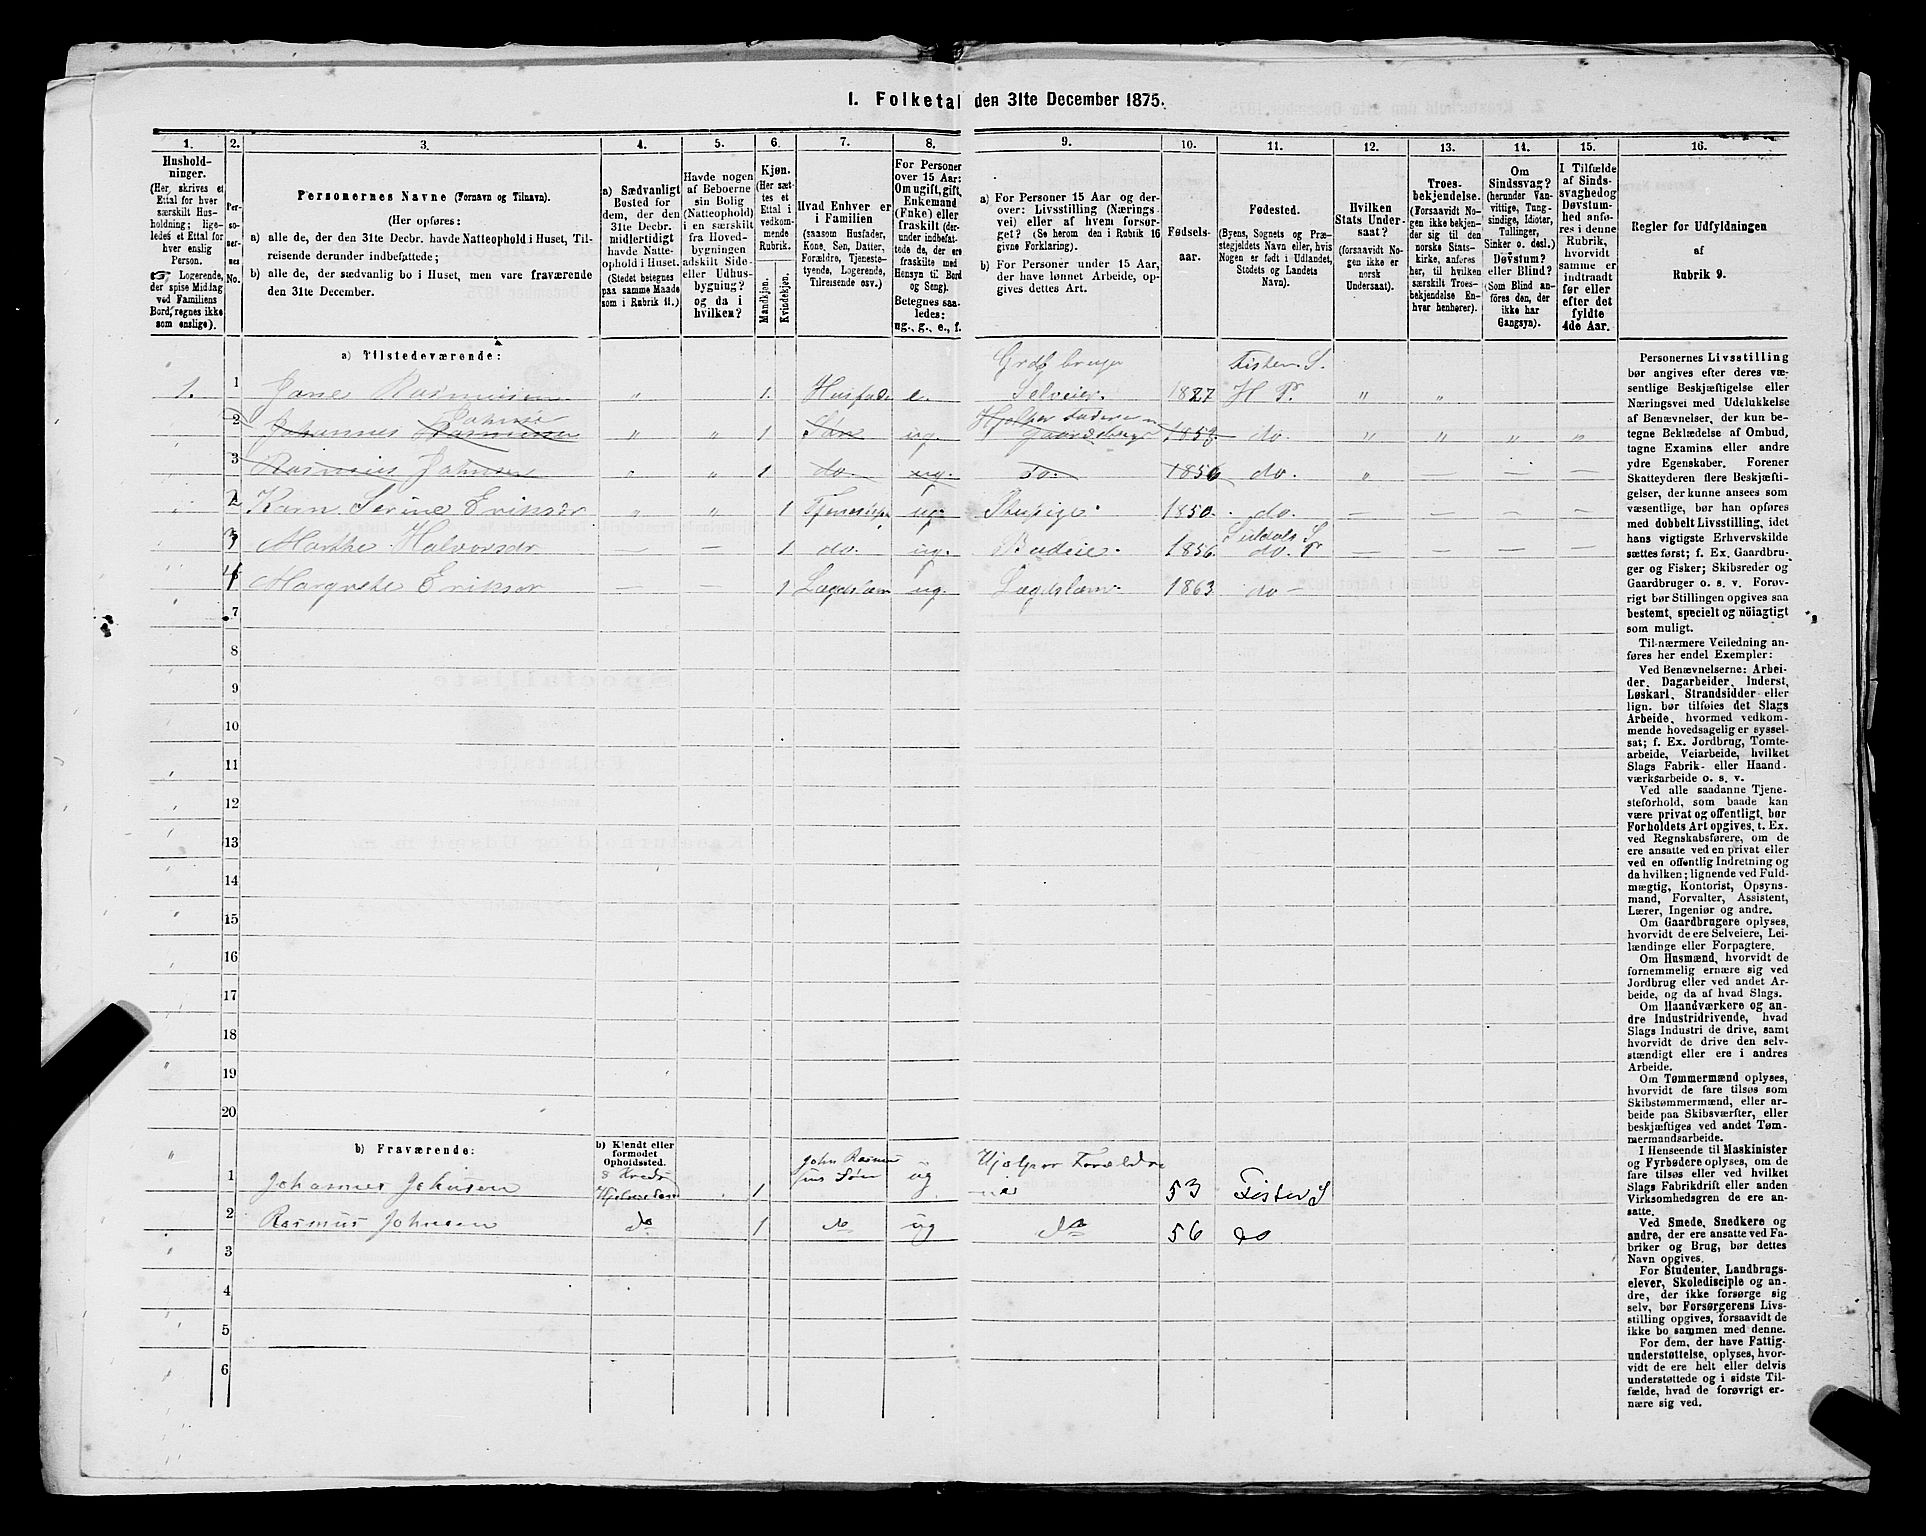 I. Folketal den 31te December 1875.
1. 2. 3. 4. 5. 6. 7. 8. 9. 10. 11. 12. 13. 14. 15. 16.
Hushold-
ninger.
(Her skrives et
Ettal for hver
særskilt Hus-
holdning; lige-
ledes et Ettal for
hver enslig
Person.
☞ Logerende,
der spise Middag
ved Familiens
Bord, regnes ikke
som enslige).
Per-
so-
ner-
nes
No.
Personernes Navne (Fornavn og Tilnavn).
(Her opføres:
a) alle de, der den 31te Decbr. havde Natteophold i Huset, Til-
reisende derunder indbefattede;
b) alle de, der sædvanlig bo i Huset, men vare fraværende
den 31te December.
a) Sædvanligt
Bosted for
dem, der den
31te Decbr.
midlertidigt
havde Natte-
ophold i Huset.
(Stedet betegnes
paa samme Maade
som i Rubrik 11.)
Havde nogen
af Beboerne
sin Bolig
(Natteophold)
i en særskilt
fra Hoved-
bygningen
adskilt Side-
eller Udhus-
bygning?
og da i
hvilken?
Kjøn.
(Her sæt-
tes et
Ettal i
vedkom-
mende
Rubrik.
Mandkjøn.
Kvindekjøn.
Hvad Enhver er
i Familien
(saasom Husfader,
Kone, Søn, Datter,
Forældre, Tjeneste-
tyende, Logerende,
Tilreisende osv.)
For Personer
over 15 Aar:
Om ugift, gift,
Enkemand
(Enke) eller
fraskilt (der-
under indbefat-
tede de, der ere
fraskilte med
Hensyn til Bord
og Seng).
Betegnes saa-
ledes:
ug., g., e., f.
a) For Personer 15 Aar og der-
over: Livsstilling (Nærings-
vei) eller af hvem forsør-
get? (Se herom den i Rubrik 16
givne Forklaring).
b) For Personer under 15 Aar,
der have lønnet Arbeide, op-
gives dettes Art.
Fødsels-
aar.
Fødested.
(Byens, Sognets og Præ-
stegjeldets Navn eller, hvis
Nogen er født i Udlandet,
Stedets og Landets
Navn).
Hvilken
Stats Under-
saat?
(forsaavidt No-
gen ikke er
norsk
Undersaat).
Troes-
bekjendelse.
(Forsaavidt No-
gen ikke bekjen-
der sig til den
norske Stats-
kirke, anføres
her, til hvilken
særskilt Troes-
bekjendelse En-
hver henhører).
Om
Sindssvag?
(herunder Van-
vittige, Tung-
sindige, Idioter,
Tullinger,
Sinker o. desl.)
Døvstum?
eller Blind?
(Som Blind an-
føres den, der
ikke har
Gangsyn).
I Tilfælde
af Sinds-
svaghed og
Døvstum-
hed anfø-
res i denne
Rubrik,
hvorvidt
samme er
indtraadt
før eller
efter det
fyldte
4de Aar.
Regler for Udfyldningen
af
Rubrik 9.
a) Tilstedeværende: Grdbruger Fister S.
1. 1 Jone Rasmusen " 1. Husfad. e. Selveier. 1827 H P. " "
Johnsø
2 Johannes Rasmusen " " 1 Søn ug. Gaardsbrug 1853 do. " " " "
3 Rasmus Johnsen " " 1 do. ug. do. 1856 do. " — — —
2 Karn Serine Eriksdr " " 1 ug. 1850. do. — — — —
Suldals S.
3 Marthe Halvorsdr — — 1 do. ug. Budeie. 1856. do. P — — — —
4 Margrethe Eriksdr — — 1 Lægdslem ug. Lægdslem. 1863 do — — — — —
7
8
9
10
11
12
13
14
15
16
17
18
19
20
b) Fraværende:
b) Kjendt eller
formodet
Opholdssted.
1 Johannes Johnsen 1 John Rasmu
sens Søn ug Hjelper Forældre
ne 53 Fister S
2 Rasmus Johnsen do 1 do ug do 56 do
3
4
5
6
Personernes Livsstilling
bør angives efter deres væ-
sentlige Beskjæftigelse eller
Næringsvei med Udelukkelse
af Benævnelser, der kun be-
tegne Beklædelse af Ombud,
tagne Examina eller andre
ydre Egenskaber. Forener
Skatteyderen flere Beskjæfti-
gelser, der kunne ansees som
væsentlige, bør han opføres
med dobbelt Livsstilling, idet
hans vigtigste Erhvervskilde
sættes først; f. Ex. Gaardbru-
ger og Fisker; Skibsreder og
Gaardbruger o. s. v. Forøv-
rigt bør Stillingen opgives saa
bestemt, specielt og nöiagtigt
som muligt.
Til nærmere Veiledning an-
føres her endel Exempler:
Ved Benævnelserne: Arbei-
der, Dagarbeider, Inderst,
Løskarl, Strandsidder eller
lign. bør tilføies det Slags
Arbeide, hvormed vedkom-
mende hovedsagelig er syssel-
sat; f. Ex. Jordbrug, Tomte-
arbeide, Veiarbeide, hvilket
Slags Fabrik- eller Haand-
værksarbeide o. s. v.
Ved alle saadanne Tjene-
steforhold, som baade kan
være privat og offentligt, bør
Forholdets Art opgives, t. Ex.
ved Regnskabsførere, om de
ere ansatte ved en privat eller
ved en offentlig Indretning og
da hvilken; lignende ved Fuld-
mægtig, Kontorist, Opsyns-
mand, Forvalter, Assistent,
Lærer, Ingeniør og andre.
Om Gaardbrugere oplyses,
hvorvidt de ere Selveiere, Lei-
lændinge eller Forpagtere.
Om Husmænd, hvorvidt de
fornemmelig ernære sig ved
Jordbrug eller ved andet Ar-
beide, og da af hvad Slags.
Om Haandværkere og an-
dre Industridrivende, hvad
Slags Industri de drive, samt
hvorvidt de drive den selv-
stændigt eller ere i andres
Arbeide.
Om Tømmermænd oplyses,
hvorvidt de fare tilsøs som
Skibstømmermænd, eller ar-
beide paa Skibsværfter, eller
beskjæftiges ved andet Tøm-
mermandsarbeide.
I Henseende til Maskinister
og Fyrbødere oplyses, om de
fare tilsøs eller ved hvilket
Slags Fabrikdrift eller anden
Virksomhedsgren de ere an-
satte.
Ved Smede, Snedkere og
andre, der ere ansatte ved Fa-
briker og Brug, bør dettes
Navn opgives.
For Studenter, Landbrugs-
elever, Skoledisciple og an-
dre, der ikke forsørge sig
selv, bør Forsørgerens Livs-
stilling opgives, forsaavidt de
ikke bo sammen med denne.
For dem, der have Fattig-
understøttelse, oplyses, hvor-
vidt de ere helt eller delvis
understøttede og i sidste Til-
fælde, hvad de forøvrigt er-
nære sig ved.